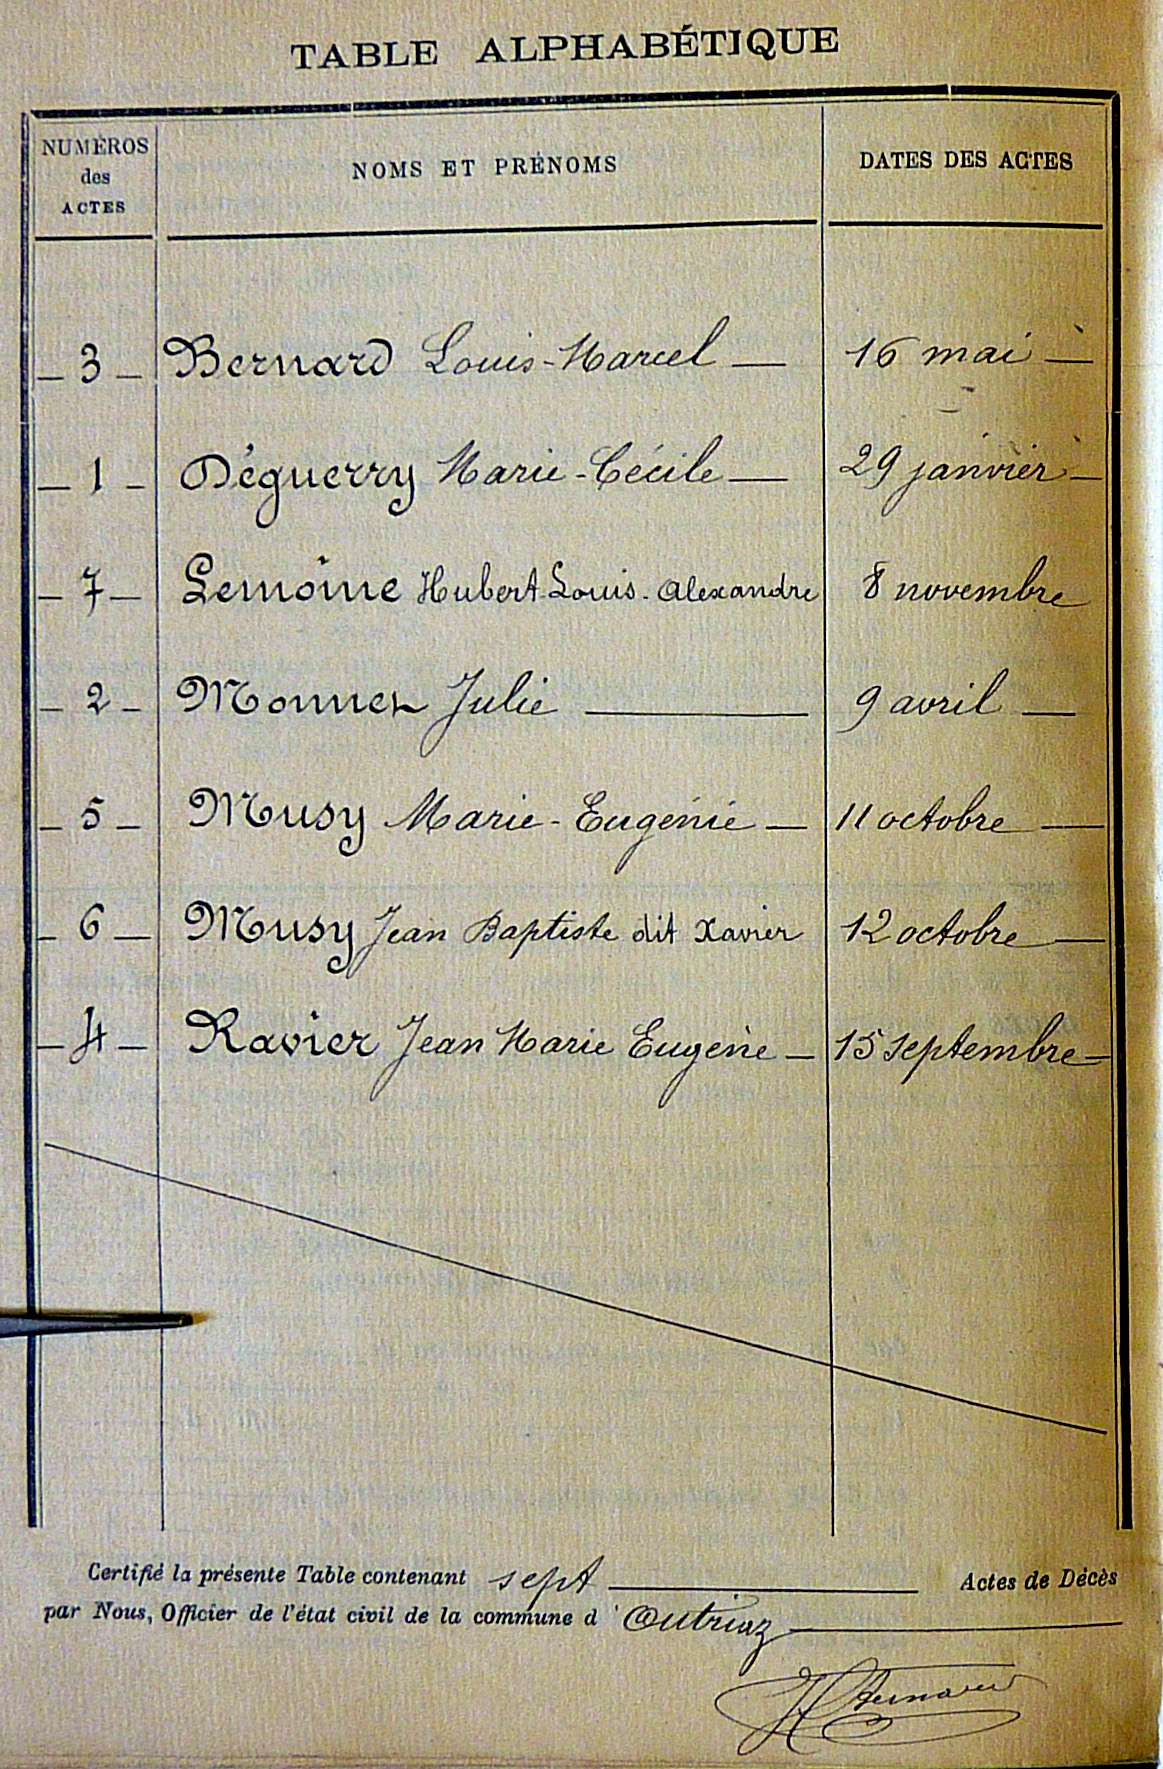 TABLE ALPHABÉTIQUE
NUMÉROS des ACTES NOMS ET PRÉNOMS DATES DES ACTES
3 Bernard Louis-Marcel 16 mai
1 Déguerry Marie-Cécile 29 janvier
7 Lemoine Hubert-Louis-Alexandre 8 novembre
2 Monnet Julie 9 avril
5 Musy Marie-Eugénie 11 octobre
6 Musy Jean Baptiste dit Xavier 12 octobre
4 Ravier Jean Marie Eugène 15 septembre
Certifié la présente Table contenant sept Actes de Décès
par Nous, Officier de l'état civil de la commune d'Outriaz
Bernard